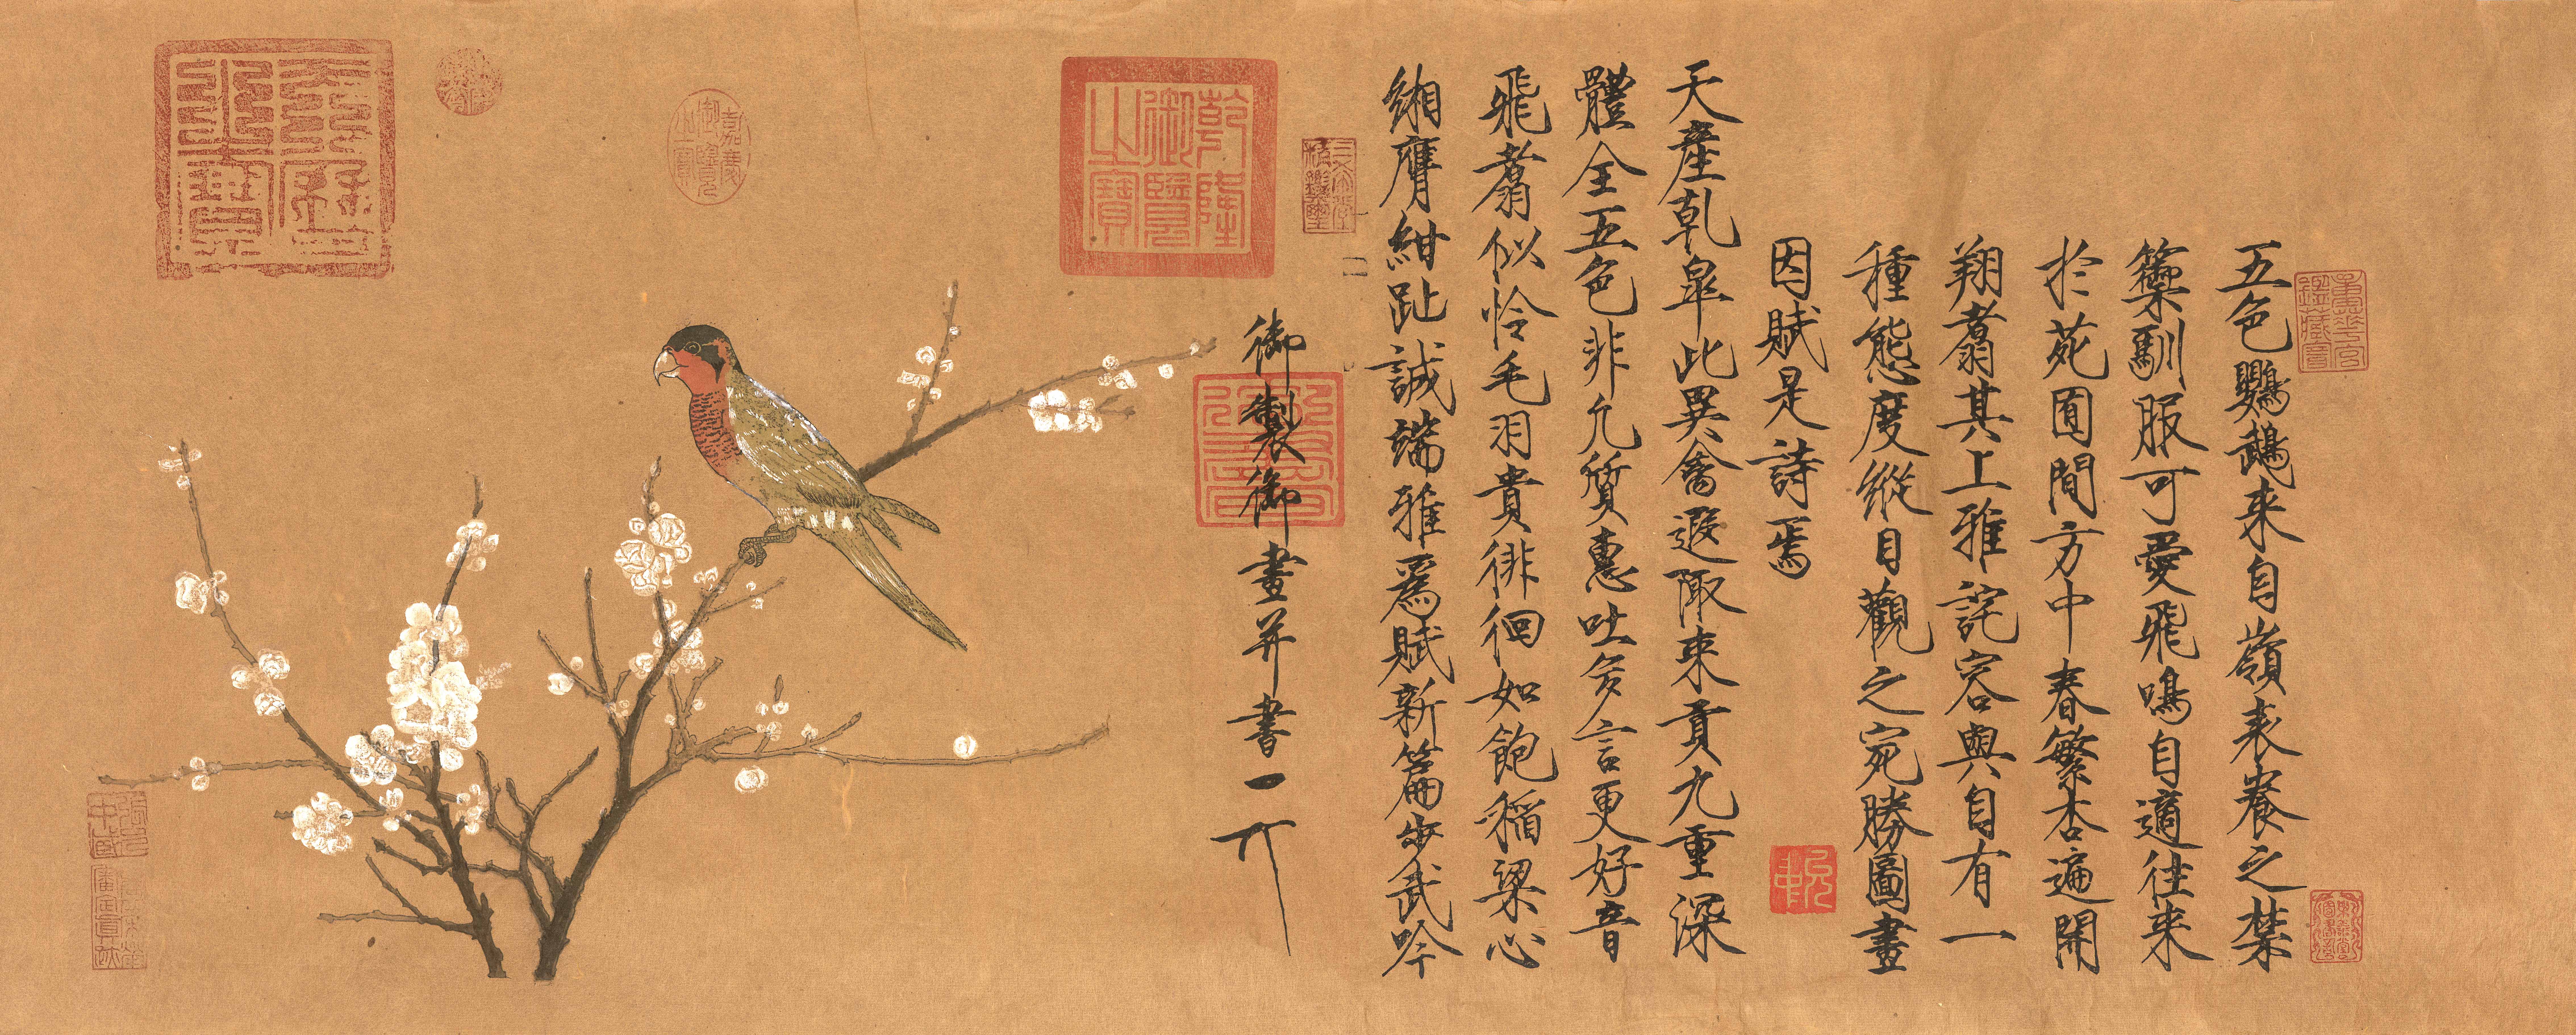 重華宮鑑藏寶
五色鸚鵡来自嶺表養之禁
籞馴服可愛飛鳴自適往来
於苑囿間方中春繁杏遍開
翔翥其上雅詫容與自有一
種態度縱目觀之宛勝圖畫
因賦是詩焉
天產乾皐此異禽遐陬来貢九重深
體全五色非凡質惠吐多言更好音
飛翥似怜毛羽貴徘徊如飽稻粱心
緗膺紺趾誠端雅爲賦新篇步武吟
三希堂精鑑璽
御製御畫并書
乾隆御覽之寶
嘉慶御覽之寶